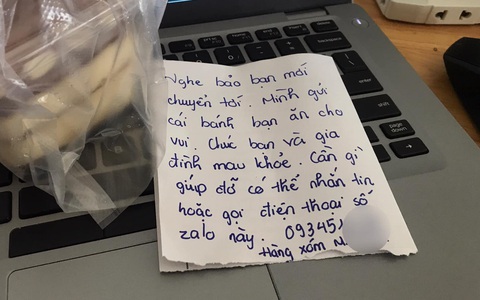 Nghe bảo bạn mới
chuyển tới. Mình gửi
cái bánh bạn ăn cho
vui. Chúc bạn và gia
đình mau khỏe. Cần gì
giúp đỡ có thể nhắn tin
hoặc gọi điện thoại số
zalo này. 09345
Hàng xóm